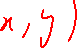 x, y)